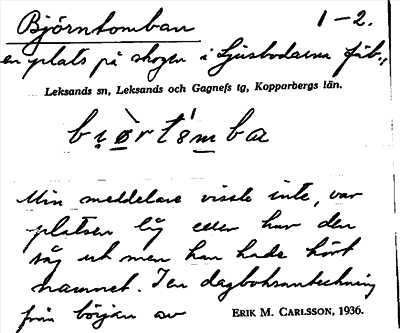 Björntomban 1-2.
en plats på skogen i Ljusbodarna fäb.,
Leksands sn, Leksands och Gagnefs tg, Kopparbergs län.
Min meddelare visste inte, var
platsen låg eller hur den
såg ut men han hade hört
namnet. I en dagboksanteckning
från början av ERIK M. CARLSSON, 1936.